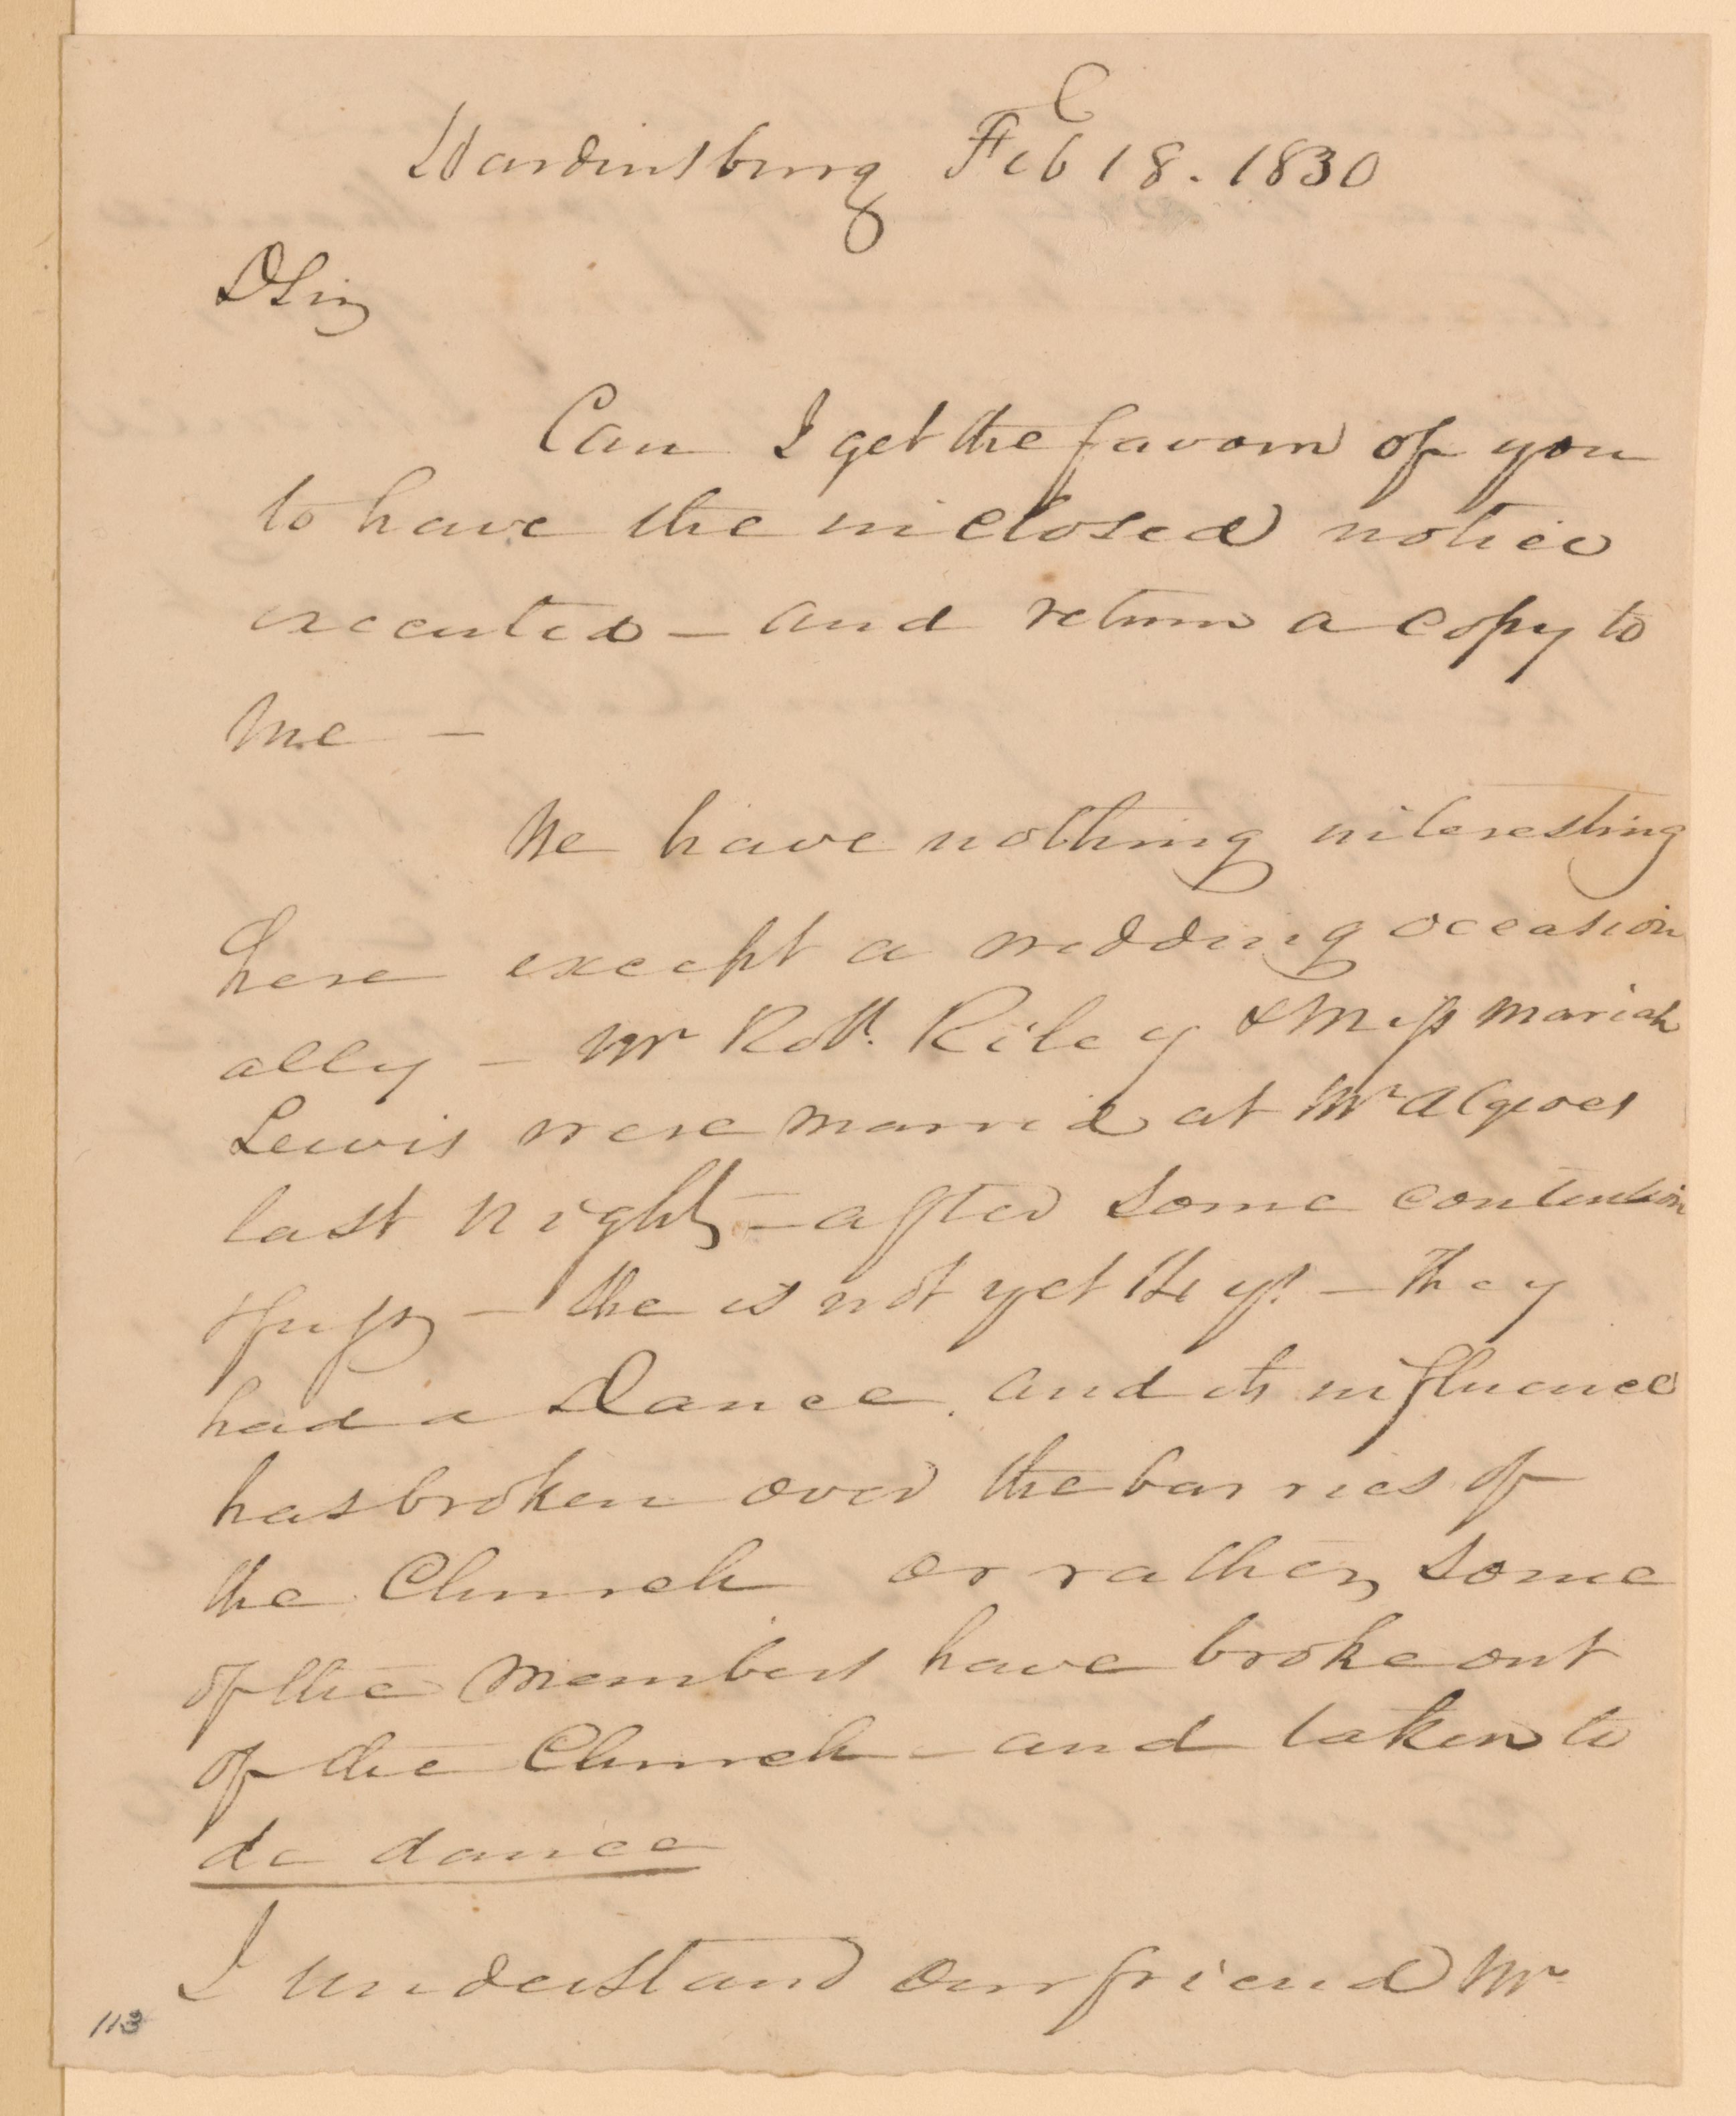 Hardinsburg Feb 18. 1830
D Sir
Can I get the favour of you
to have the inclosed notice
executed — and return a copy to
me —
We have nothing interesting
here except a wedding occasion
ally — Mr Robt. Riley & Miss Mariah
Lewis were married at Mr
last night — after some contention
& fuss — she is not yet 14 yrs — They
had a Dance. and its influence
has broken over the barries of
the Church or rather some
of the Members have broke out
of the Church — and taken to
de dance
I understand our friend Mr
113